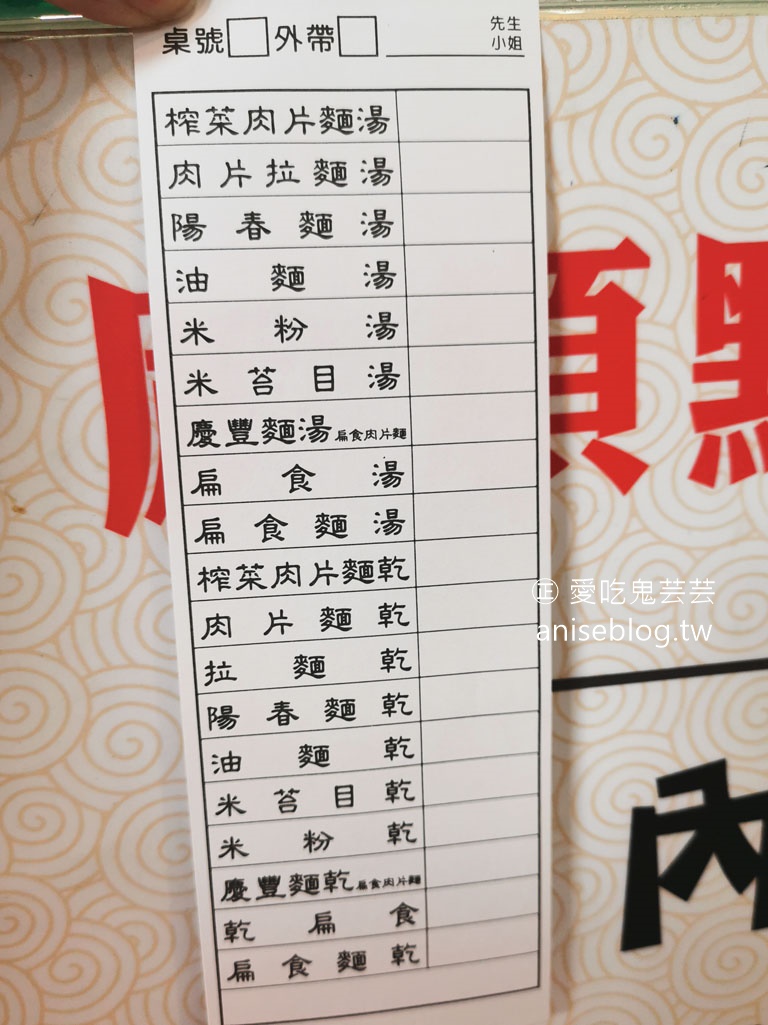 桌號 外帶 先生
小姐
榨菜肉片麵湯
肉片拉麵湯
陽春麵湯
油麵湯
米粉湯
米苔目湯
慶豐麵湯 扁食肉片麵
扁食湯
扁食麵湯
榨菜肉片麵乾
肉片麵乾
拉麵乾
陽春麵乾
油麵乾
米苔目乾
米粉乾
慶豐麵乾 扁食肉片麵
乾扁食
扁食麵乾
須點
內
㊣ 愛吃鬼芸芸
aniseblog.tw